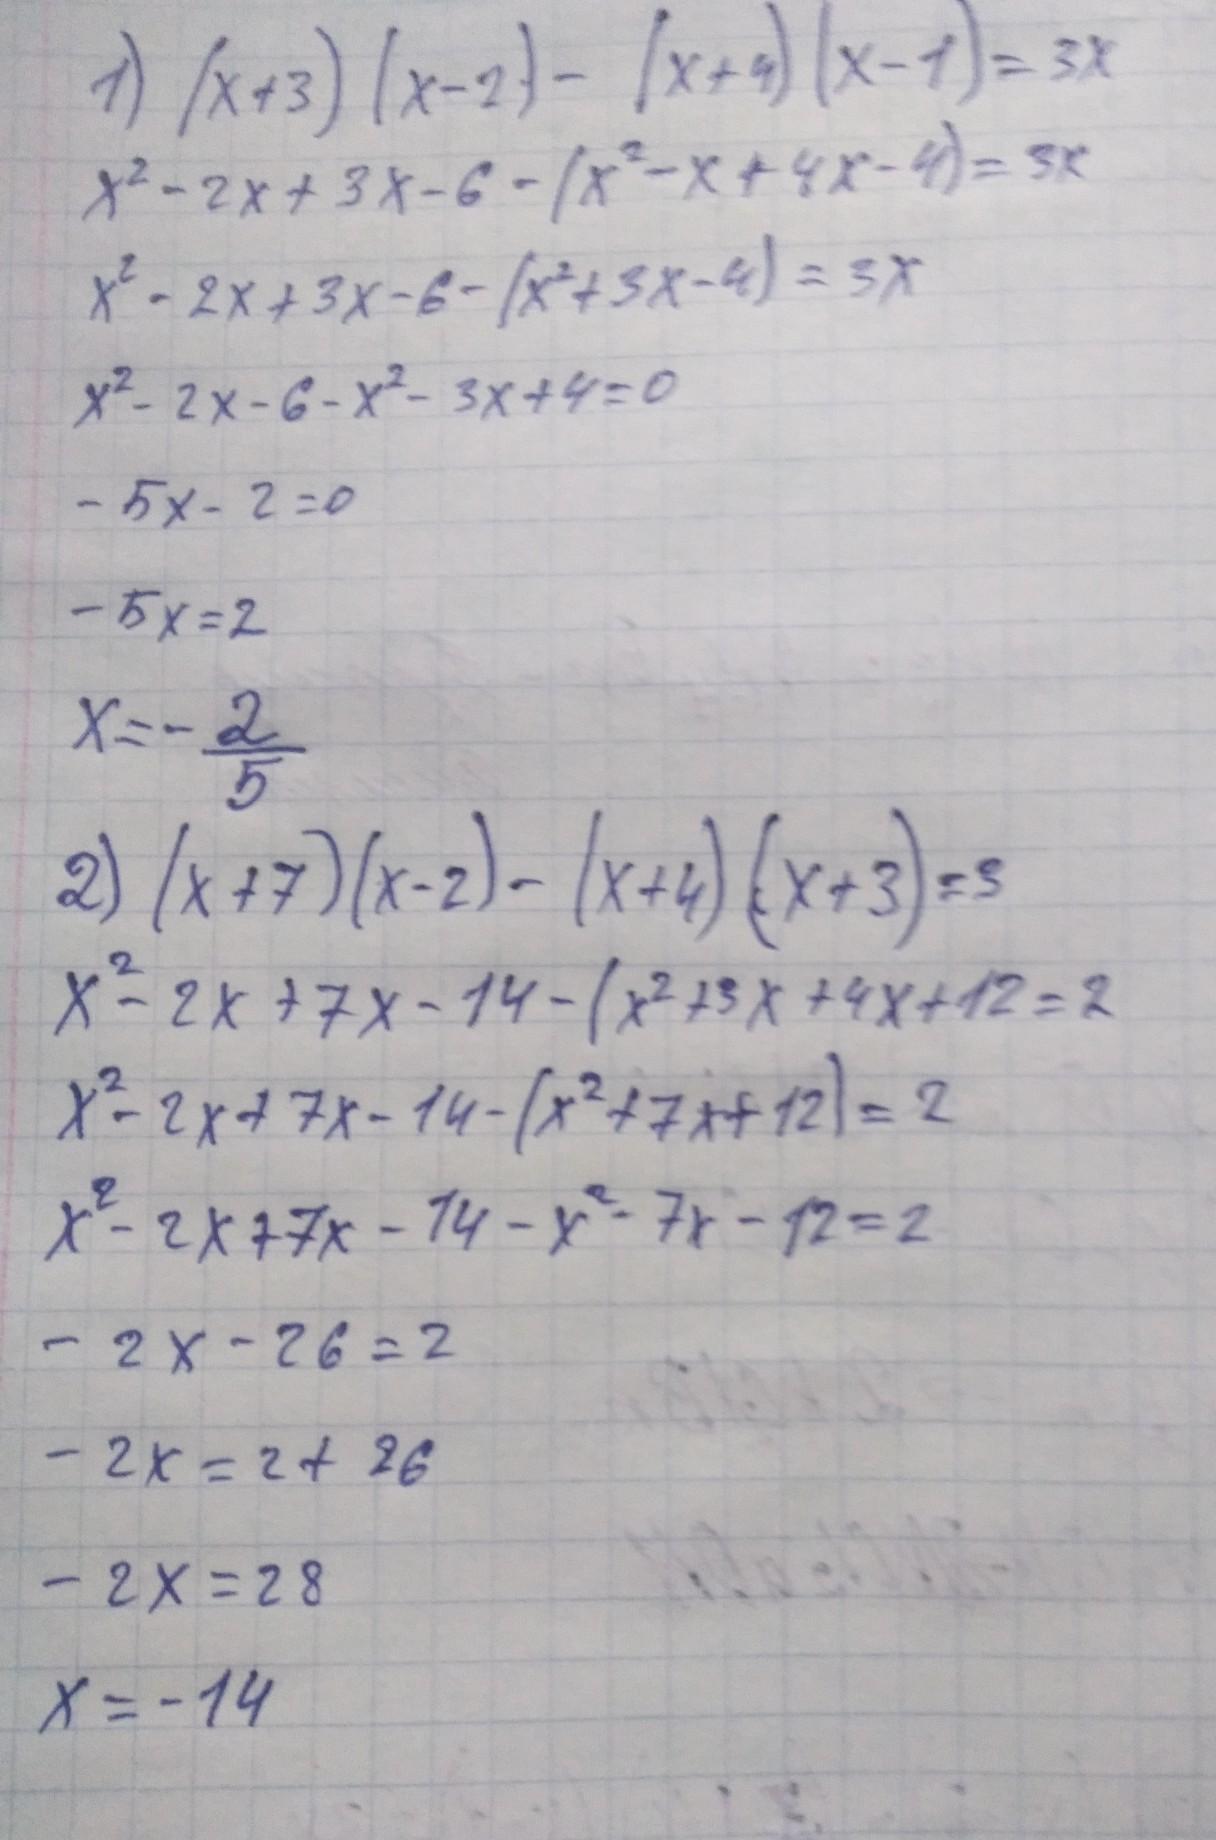 1) (x+3)(x-2)-(x+4)(x-1)=3x
x²-2x+3x-6-(x²-x+4x-4)=3x
x²-2x+3x-6-(x²+3x-4)=3x
x²-2x-6-x²-3x+4=0
-5x-2=0
-5x=2
x=-2/5
2) (x+7)(x-2)-(x+4)(x+3)=3
x²-2x+7x-14-(x²+3x+4x+12=2
x²-2x+7x-14-(x²+7x+12)=2
x²-2x+7x-14-x²-7x-12=2
-2x-26=2
-2x=2+26
-2x=28
x=-14